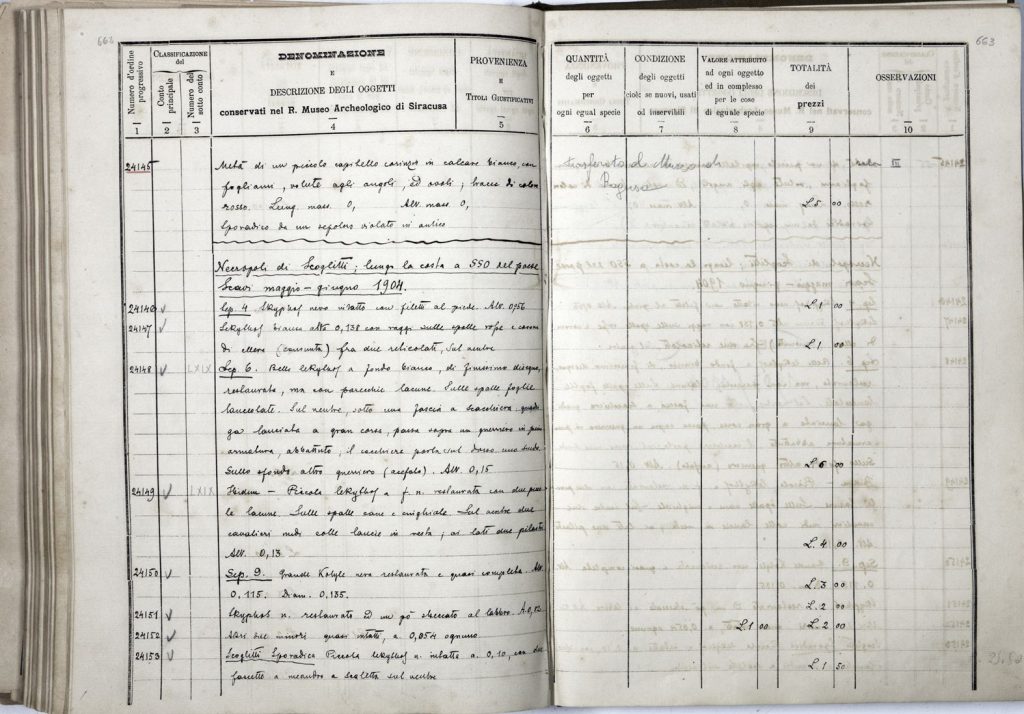 662
Numero d'ordine progressivo
1
CLASSIFICAZIONE del
Conto principale
2
Numero del sotto conto
3
DENOMINAZIONE
E
DESCRIZIONE DEGLI OGGETTI
conservati nel R. Museo Archeologico di Siracusa
4
PROVENIENZA
E
TITOLI GIUSTIFICATIVI
5
24145 Metà di un piccolo capitello corinzio in calcare bianco, con
fogliami, volute agli angoli, ed ovoli; tracce di colore
rosso. Lung. mass. 0, Alt. mass. 0,
Sporadico da un sepolcro violato in antico
Necropoli di Scoglitti; lungo la costa a SSO del paese
Scavi maggio - giugno 1904.
24146 Sep. 4 Skyphos nero intatto con filetti al piede. Alt. 0,056
24147 Lekythos bianca alta 0,138 con raggi sulle spalle rosse e corona
di ellera (consunta) fra due reticolati, sul ventre
24148 LXIX Sep. 6. Bella lekythos a fondo bianco, di finissimo disegno,
restaurata, ma con parecchie lacune. Sulle spalle foglie
lanceolate. Sul ventre, sotto una fascia a scacchiera quadri-
ga lanciata a gran corsa, passa sopra un guerriero in piena
armatura, abbattuto; il cocchiere porta sul dorso uno scudo.
Sullo sfondo altro guerriero (acefalo). Alt. 0,15
24149 LXIX Ibidem - Piccola lekythos a f. n. restaurata con due picco-
le lacune. Sulle spalle cane e cinghiale. Sul ventre due
cavalieri nudi colle lancie in resta; ai lati due pilastri
Alt. 0,13
24150 Sep. 9. Grande Kotyle nera restaurata e quasi completa. Alt.
0,115. Diam. 0,135.
24151 Skyphos n. restaurato ed un pò sbeccato al labbro.
24152 Altri due minori quasi intatti, a. 0,054 ognuno.
24153 Scoglitti Sporadico Piccola lekythos n. intatta a. 0,10, con due
fascette a meandro e scaletta sul ventre
663
QUANTITÀ
degli oggetti
per
ogni egual specie
6
CONDIZIONE
degli oggetti
cioè: se nuovi, usati
od inservibili
7
VALORE ATTRIBUITO
ad ogni oggetto
ed in complesso
per le cose
di eguale specie
8
TOTALITÀ
dei
prezzi
9
OSSERVAZIONI
10
trasferito al Museo di
Ragusa
III
L. 5 00
L. 1 00
L. 1 00
L. 6 00
L. 4 00
L. 3 00
L. 2 00
L. 1 00 L. 2 00
L. 1 50